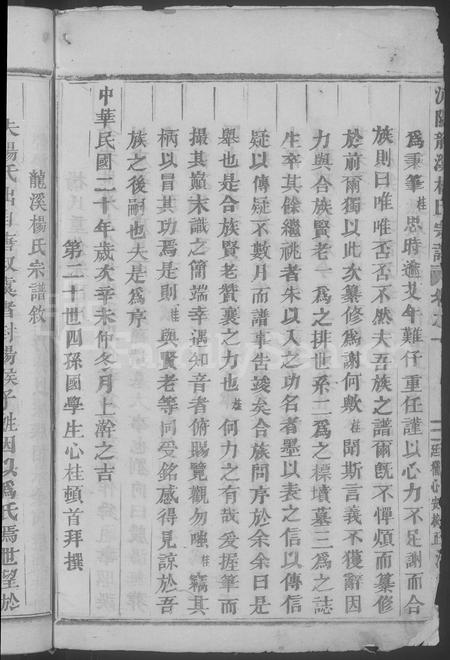 沂陽龍溪楊氏宗譜
為秉筆桂思時逾艾年難任重任謹以心力不足謝而合
族則曰唯唯否否不然夫吾族之譜爾旣不憚煩而纂修
於前爾獨以此次纂修為謝何歟桂聞斯言義不獲辭因
力與合族賢老一為之排世系二為之標墳墓三為之誌
生卒其餘繼祧者朱以入之功名者墨以表之信以傳信
疑以傳疑不數月而譜事告竣矣合族問序於余余曰是
舉也是合族賢老贊襄之力也桂何力之有哉爰握筆而
撮其巔末識之簡端幸遇知音者俯賜覽觀勿嗤桂竊其
柄以冒其功焉是則桂與賢老等同受銘感得見諒於吾
族之後嗣也夫是為序
中華民國二十年歲次辛未仲冬月上澣之吉
第二十世四孫國學生心桂頓首拜撰
龍溪楊氏宗譜敘
夫楊氏出自唐叔虞者封楊侯子姓因以為氏焉世望於